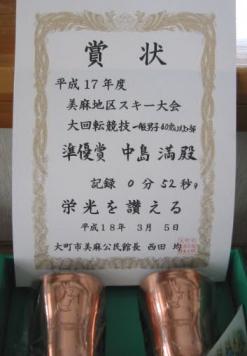 賞状
平成17年度
美麻地区スキー大会
大回転競技 一般男子40歳以上の部
準優賞 中島 満殿
記録 0分52秒9
栄光を讃える
平成18年 3月 5日
大町市美麻公民館長 西田 均